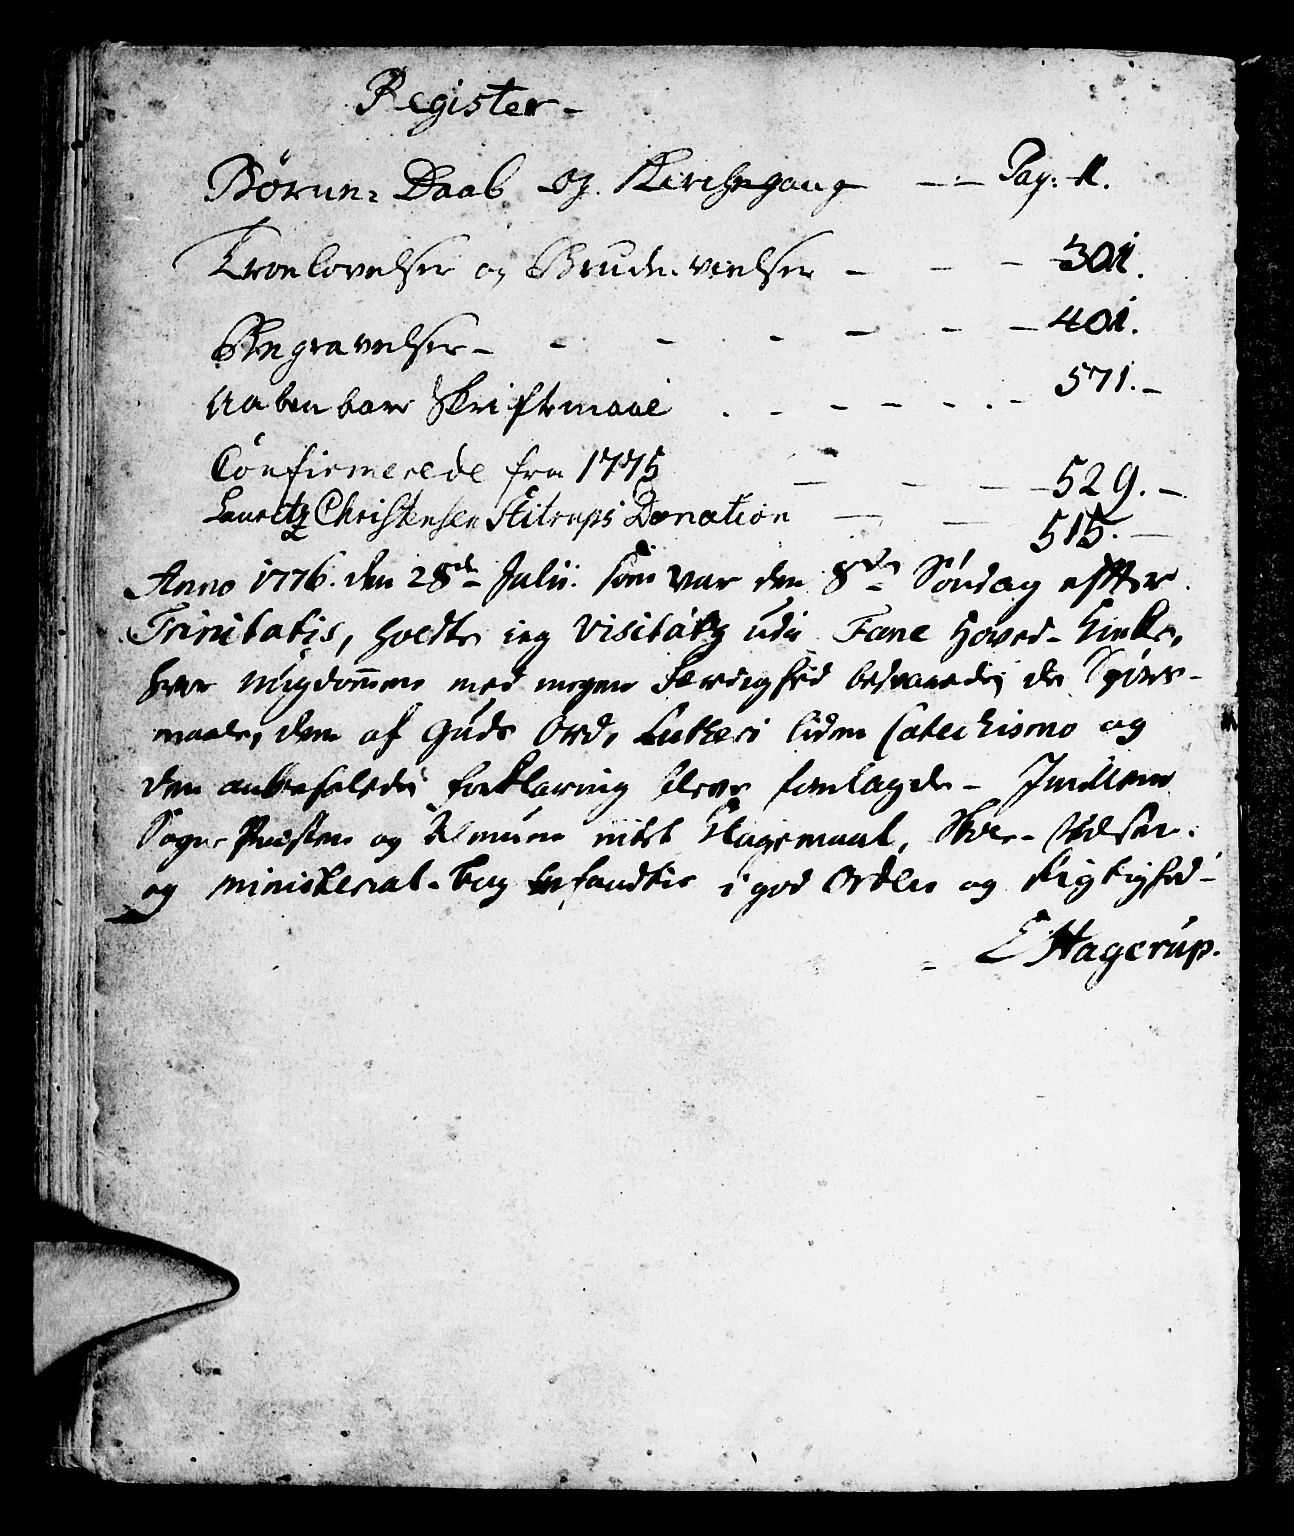 Register -
Børne Daab og Kirchegang - - Pag. 11.
Troelovelser og Brudevielser - - - 301.
Begravelser - - - - - - - 401.
Aabenbare Skriftemaal . - - - - . - 571. -
Confirmerede fra 1775 - - - - 529. -
Lauritz Christensen Stitrups Donation - - 515. -
Anno 1776. den 28de Julii. som var den 8de Søndag efter
Trinitatis, holdte jeg Visitatz udi Fane Hoved-Kirke,
hvor Ungdommen med megen Færdighed besvarede de Spørs-
maale, dem af Guds Ord, Lutheri liden Catechismo og
den anbefalede Forklaring bleve forelagde - Imellem
Sogne Præsten og Almuen intet Klagemaal,
og Ministerial-Bog befandtes i god Orden og Rigtighed -
E Hagerup.